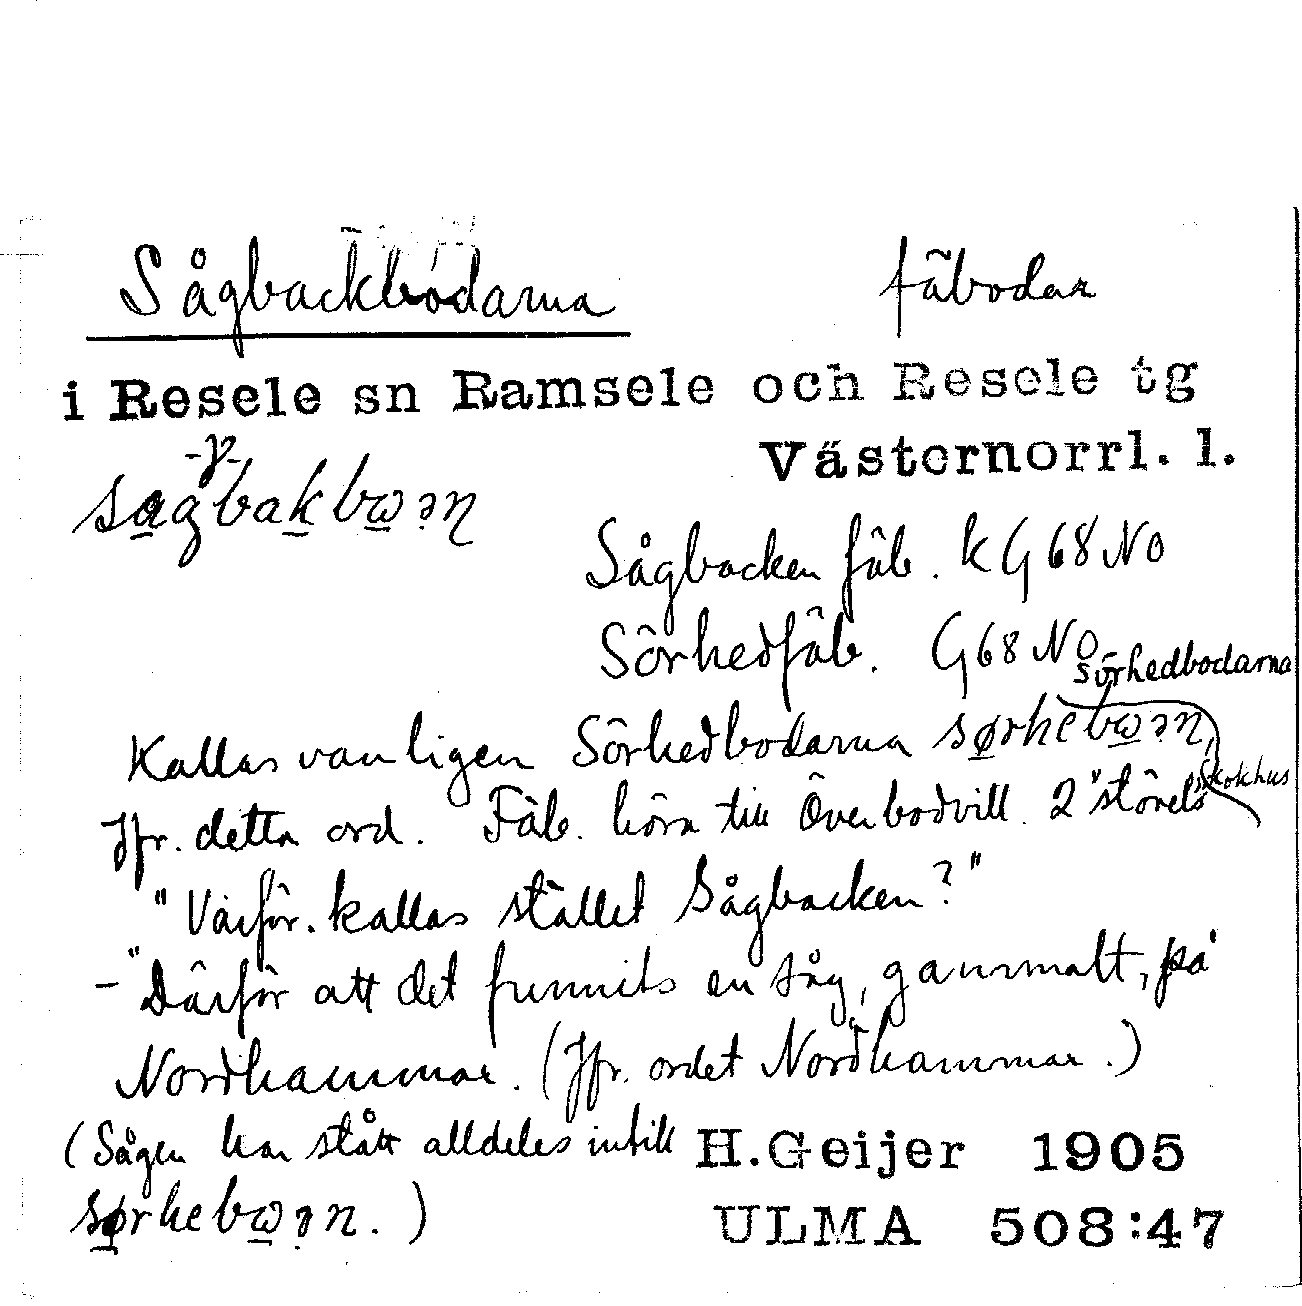 Sågbackbodarna fäbodar
i Resele sn Ramsele och Resele tg
Västernorrl. l.
-γ-
sagbakbωən
Sågbacken fäb. k G 68 NO
Sörhedfäb. G 68 NO
sörhedbodarna
Kallas vanligen Sörhedbodarna sørkebωən,
Jfr. detta ord. Fäb. höra till Överbodvill. 2 "störels"
skokhus
"Varför kallas stället Sågbacken?"
– "Därför att det funnits en såg, gammalt, på
Nordhammar. (Jfr. ordet Nordhammar.)
(Sågen har stått alldeles intill H. Geijer 1905
sørkebωən.) ULMA 508:47